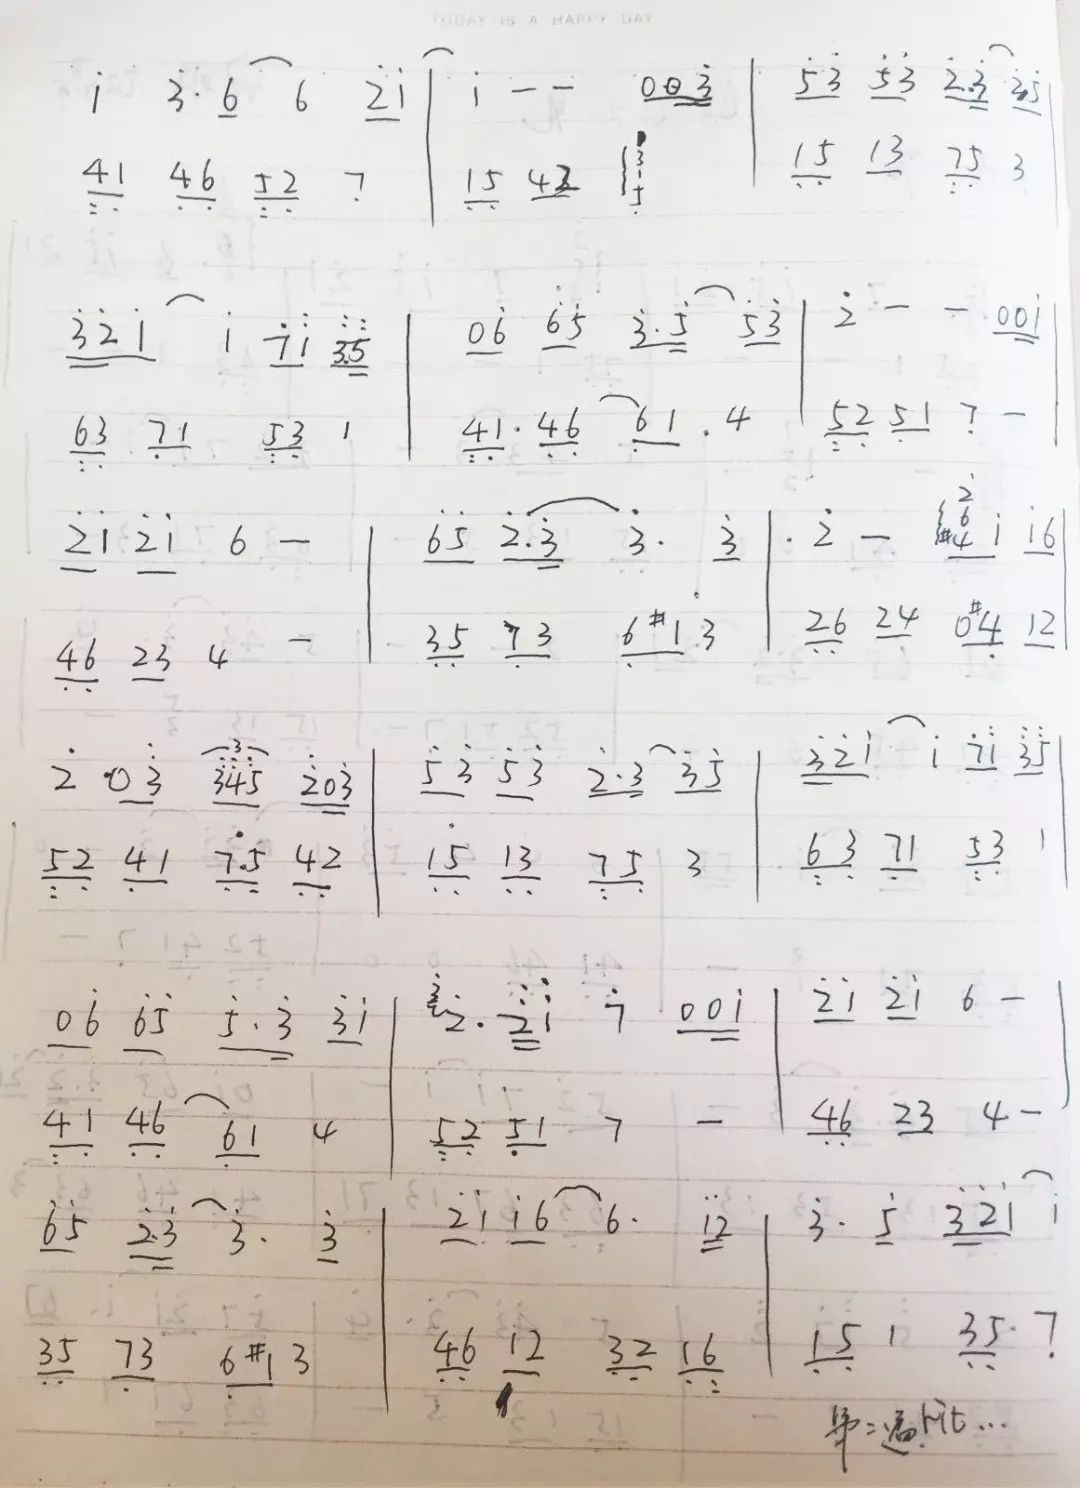 TODAY IS A HAPPY DAY
i 3̇· 6 6 2̇i | i — — 003̇ | 5̇3̇ 5̇3̇ 2̇·3̇ 3̇5̇
41 46 52 7 | 15 42 3 1 5 | 15 13 75 3
3̇2̇i i 7̇i 3̇5̇ | 06̇ 6̇5̇ 3̇·5̇ 5̇3̇ | 2̇ — — 00i
63 71 53 1 | 41· 46 61 · 4 | 52 51 7 —
2̇i 2̇i 6 — | 6̇5̇ 2̇·3̇ 3̇· 3̇ | · 2̇ — 2̇ 6 #4 i i6
46 23 4 — | 35 73 6#1 3 | 26 24 0#4 12
2̇ ·03̇ 3 3̇4̇5̇ 2̇03̇ | 5̇3̇ 5̇3̇ 2̇·3̇ 3̇5̇ | 3̇2̇i i 7̇i 3̇5̇
52 41 7·5 42 | 15 13 75 3 | 63 71 53 1
06̇ 6̇5̇ 5̇·3̇ 3̇i | 2̇· 2̇i 7 00i | 2̇i 2̇i 6 —
41 46 61 4 | 52 51 7 — | 46 23 4 —
6̇5̇ 2̇·3̇ 3̇· 3̇ | 2̇i i6 6· i2̇ | 3̇· 5̇ 3̇2̇i i
35 73 6#1 3 | 46 12 32 16 | 15 1 35· 7
第二遍 rit...